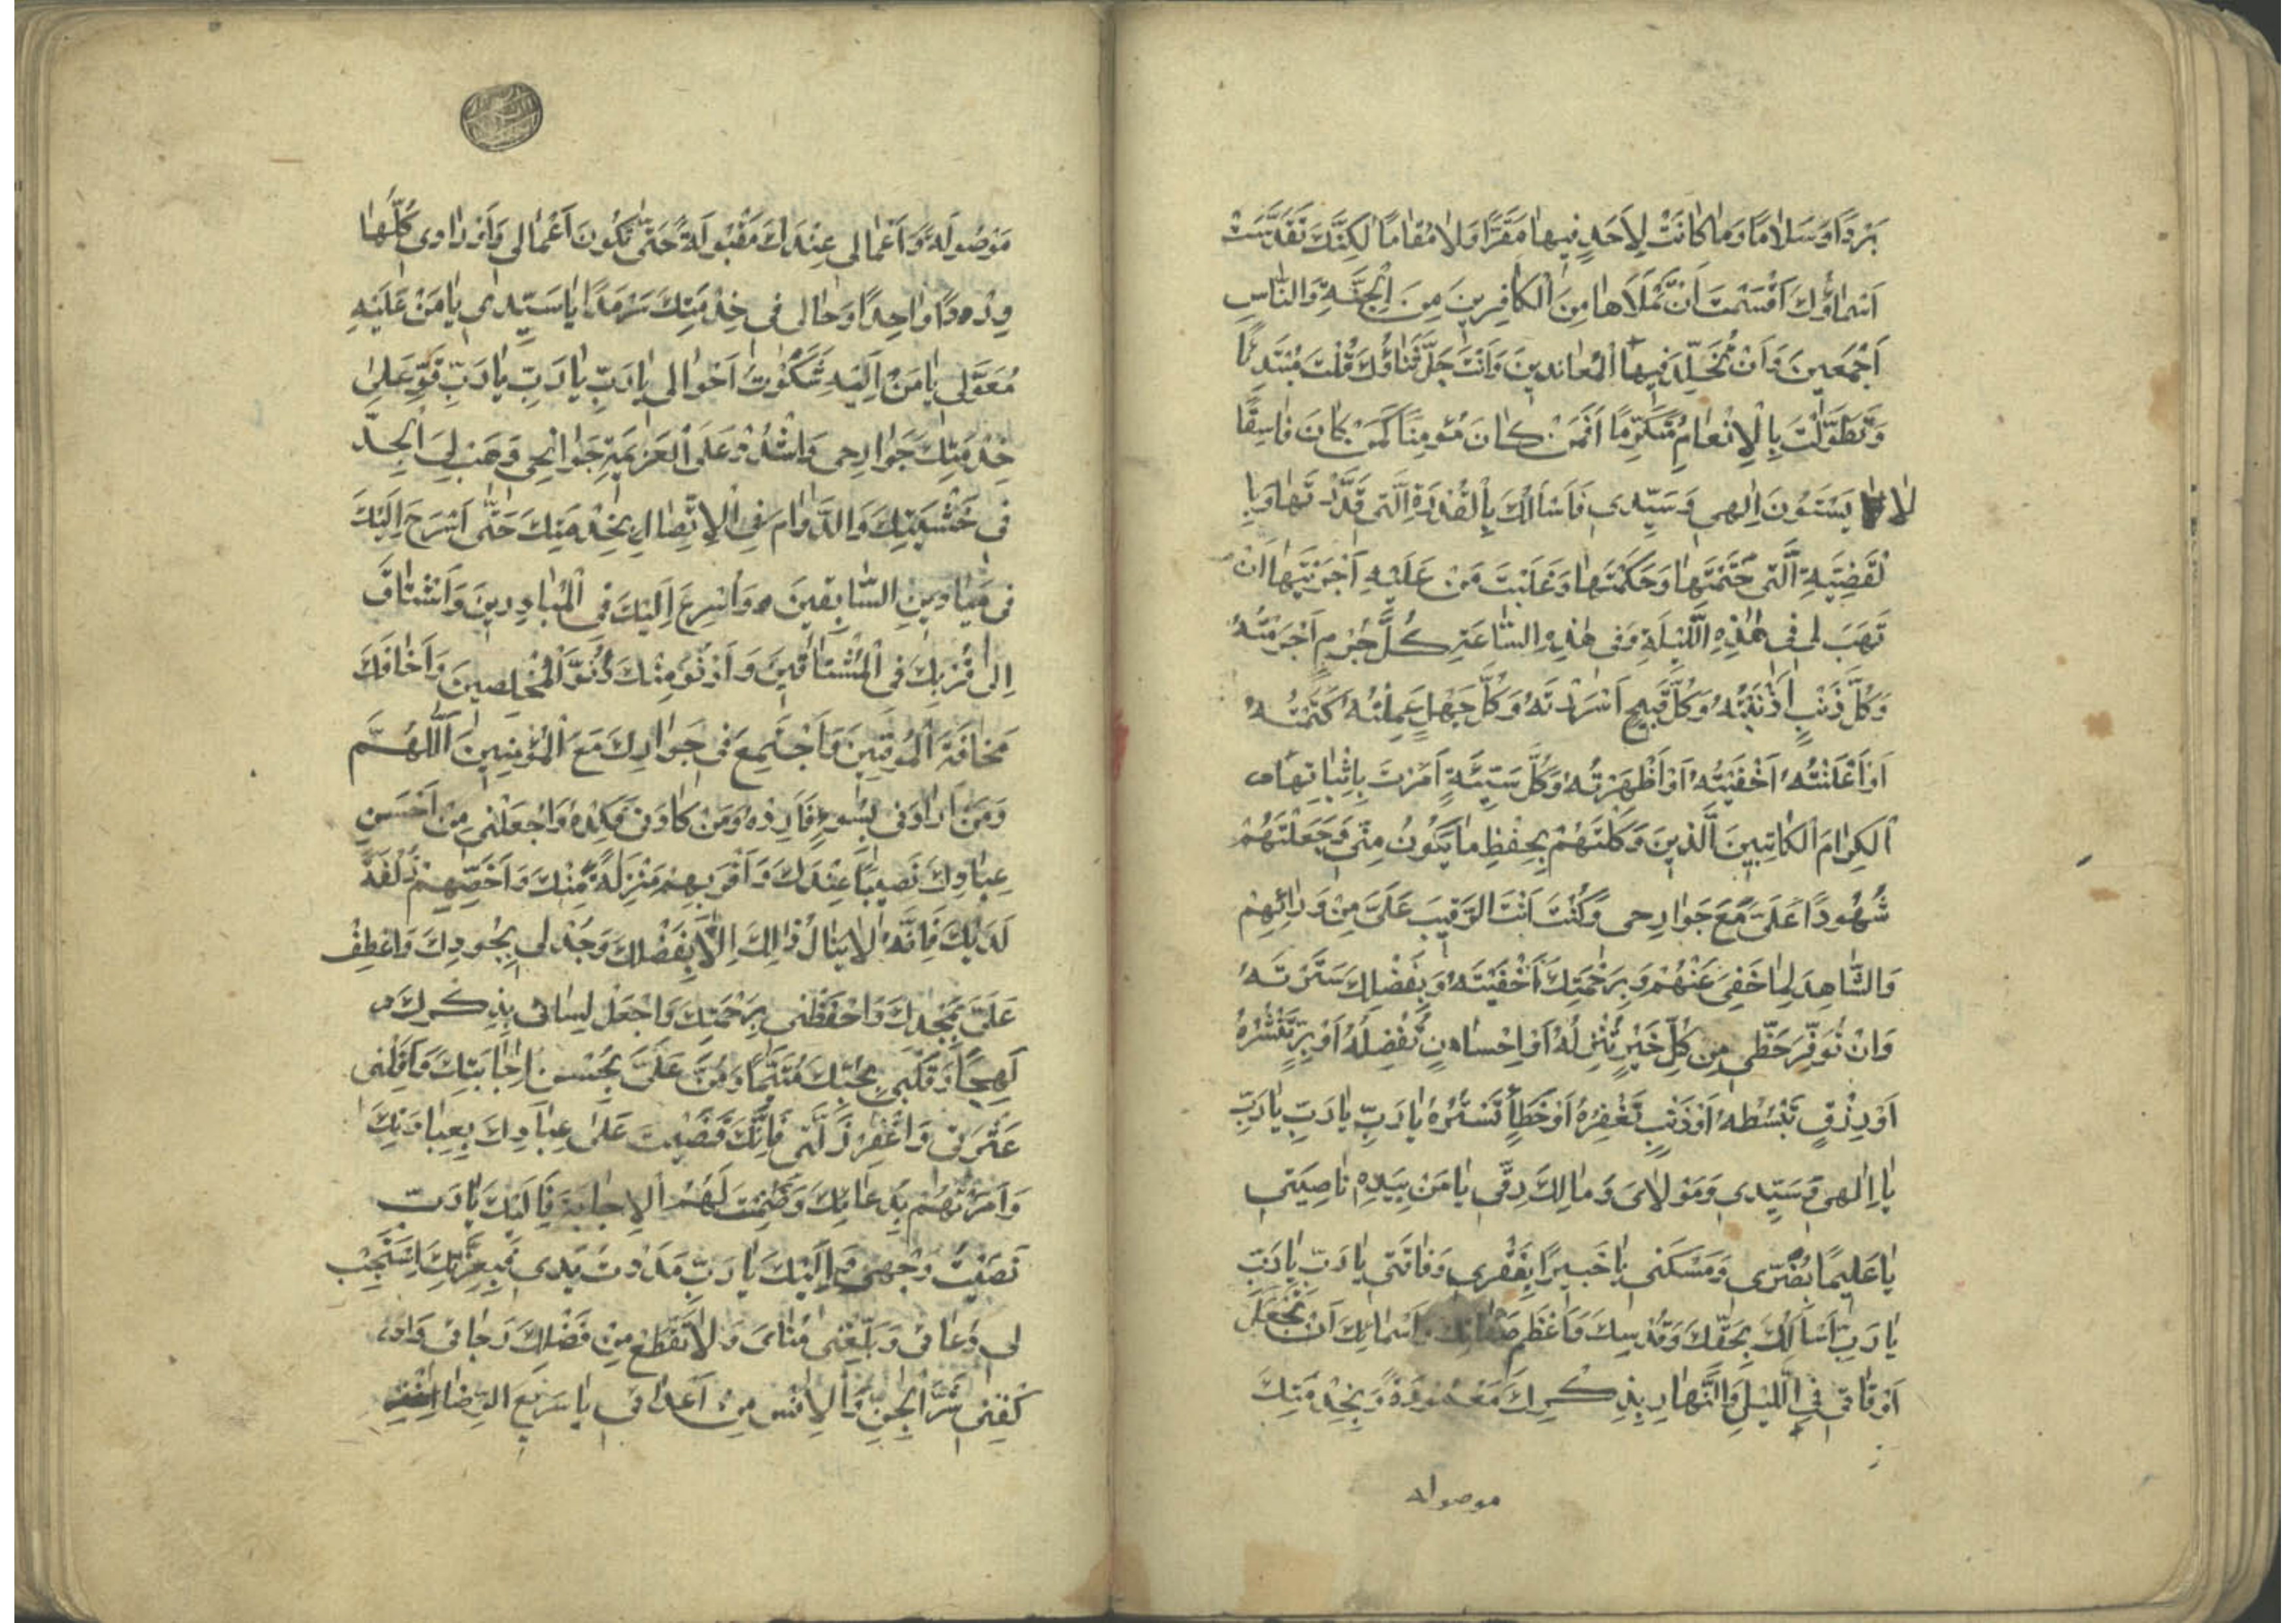 بَرْدًا وَسَلَامًا وَمَا كَانَتْ لِاَحَدٍ فِيهَا مَقَرًّا وَلَا مُقَامًا لٰكِنَّكَ تَقَدَّسَتْ
اَسْمَاؤُكَ اَقْسَمْتَ اَنْ تَمْلَاَهَا مِنَ الْكَافِرِينَ مِنَ الْجِنَّةِ وَالنَّاسِ
اَجْمَعِينَ وَاَنْ تُخَلِّدَ فِيهَا الْمُعَانِدِينَ وَاَنْتَ جَلَّ ثَنَاؤُكَ قُلْتَ مُبْتَدِئًا
وَتَطَوَّلْتَ بِالْاِنْعَامِ مُتَكَرِّمًا اَفَمَنْ كَانَ مُؤْمِنًا كَمَنْ كَانَ فَاسِقًا
لَا يَسْتَوُنَ اِلٰهِي وَسَيِّدِي فَاَسْاَلُكَ بِالْقُدْرَةِ الَّتِي قَدَّرْتَهَا وَبِا
لْقَضِيَّةِ الَّتِي حَتَمْتَهَا وَحَكَمْتَهَا وَغَلَبْتَ مَنْ عَلَيْهِ اَجْرَيْتَهَا اَنْ
تَهَبَ لِي فِي هٰذِهِ اللَّيْلَةِ وَفِي هٰذِهِ السَّاعَةِ كُلَّ جُرْمٍ اَجْرَمْتُهُ
وَكُلَّ ذَنْبٍ اَذْنَبْتُهُ وَكُلَّ قَبِيحٍ اَسْرَرْتَهُ وَكُلَّ جَهْلٍ عَمِلْتُهُ كَتَمْتُهُ
اَوْ اَعْلَنْتُهُ اَخْفَيْتُهُ اَوْ اَظْهَرْتُهُ وَكُلَّ سَيِّئَةٍ اَمَرْتَ بِاِثْبَاتِهَا
الْكِرَامَ الْكَاتِبِينَ الَّذِينَ وَكَّلْتَهُمْ بِحِفْظِ مَا يَكُونُ مِنِّي وَجَعَلْتَهُمْ
شُهُودًا عَلَيَّ مَعَ جَوَارِحِي وَكُنْتَ اَنْتَ الرَّقِيبَ عَلَيَّ مِنْ وَرَائِهِمْ
وَالشَّاهِدَ لِمَا خَفِيَ عَنْهُمْ وَبِرَحْمَتِكَ اَخْفَيْتَهُ وَبِفَضْلِكَ سَتَرْتَهُ
وَاَنْ تُوَفِّرَ حَظِّي مِنْ كُلِّ خَيْرٍ تُنْزِلُهُ اَوْ اِحْسَانٍ تُفْضِلُهُ اَوْ بِرٍّ تَنْشُرُهُ
اَوْ رِزْقٍ تَبْسُطُهُ اَوْ ذَنْبٍ تَغْفِرُهُ اَوْ خَطَإٍ تَسْتُرُهُ يَا رَبِّ يَا رَبِّ يَا رَبِّ
يَا اِلٰهِي وَسَيِّدِي وَمَوْلَايَ وَمَالِكَ رِقِّي يَا مَنْ بِيَدِهِ نَاصِيَتِي
يَا عَلِيمًا بِضُرِّي وَمَسْكَنَتِي يَا خَبِيرًا بِفَقْرِي وَفَاقَتِي يَا رَبِّ يَا رَبِّ
يَا رَبِّ اَسْاَلُكَ بِحَقِّكَ وَقُدْسِكَ وَاَعْظَمِ صِفَاتِكَ وَاَسْمَائِكَ اَنْ تَجْعَلَ
اَوْقَاتِي فِي اللَّيْلِ وَالنَّهَارِ بِذِكْرِكَ مَعْمُورَةً وَبِخِدْمَتِكَ
موصوله
مَوْصُولَةً وَاَعْمَالِي عِنْدَكَ مَقْبُولَةً حَتّٰى تَكُونَ اَعْمَالِي وَاَوْرَادِي كُلُّهَا
وِرْدًا وَاحِدًا وَحَالِي فِي خِدْمَتِكَ سَرْمَدًا يَا سَيِّدِي يَا مَنْ عَلَيْهِ
مُعَوَّلِي يَا مَنْ اِلَيْهِ شَكَوْتُ اَحْوَالِي يَا رَبِّ يَا رَبِّ يَا رَبِّ قَوِّ عَلٰى
خِدْمَتِكَ جَوَارِحِي وَاشْدُدْ عَلَى الْعَزِيمَةِ جَوَانِحِي وَهَبْ لِيَ الْجِدَّ
فِي خَشْيَتِكَ وَالدَّوَامَ فِي الْاِتِّصَالِ بِخِدْمَتِكَ حَتّٰى اَسْرَحَ اِلَيْكَ
فِي مَيَادِينِ السَّابِقِينَ وَاُسْرِعَ اِلَيْكَ فِي الْمُبَادِرِينَ وَاَشْتَاقَ
اِلٰى قُرْبِكَ فِي الْمُشْتَاقِينَ وَاَدْنُوَ مِنْكَ دُنُوَّ الْمُخْلِصِينَ وَاَخَافَكَ
مَخَافَةَ الْمُوقِنِينَ وَاَجْتَمِعَ فِي جَوَارِكَ مَعَ الْمُؤْمِنِينَ اَللّٰهُمَّ
وَمَنْ اَرَادَنِي بِسُوءٍ فَاَرِدْهُ وَمَنْ كَادَنِي فَكِدْهُ وَاجْعَلْنِي مِنْ اَحْسَنِ
عِبَادِكَ نَصِيبًا عِنْدَكَ وَاَقْرَبِهِمْ مَنْزِلَةً مِنْكَ وَاَخَصِّهِمْ زُلْفَةً
لَدَيْكَ فَاِنَّهُ لَا يَنَالُ ذَالِكَ اِلَّا بِفَضْلِكَ وَجُدْ لِي بِجُودِكَ وَاعْطِفْ
عَلَيَّ بِمَجْدِكَ وَاحْفَظْنِي بِرَحْمَتِكَ وَاجْعَلْ لِسَانِي بِذِكْرِكَ
لَهِجًا وَقَلْبِي بِحُبِّكَ مُتَيَّمًا وَمُنَّ عَلَيَّ بِحُسْنِ اِجَابَتِكَ وَاَقِلْنِي
عَثْرَتِي وَاغْفِرْ زَلَّتِي فَاِنَّكَ قَضَيْتَ عَلٰى عِبَادِكَ بِعِبَادَتِكَ
وَاَمَرْتَهُمْ بِدُعَائِكَ وَضَمِنْتَ لَهُمُ الْاِجَابَةَ فَاِلَيْكَ يَا رَبِّ
نَصَبْتُ وَجْهِي وَاِلَيْكَ يَا رَبِّ مَدَدْتُ يَدِي فَبِعِزَّتِكَ اسْتَجِبْ
لِي دُعَائِي وَبَلِّغْنِي مُنَايَ وَلَا تَقْطَعْ مِنْ فَضْلِكَ رَجَائِي وَا
كْفِنِي شَرَّ الْجِنِّ وَالْاِنْسِ مِنْ اَعْدَائِي يَا سَرِيعَ الرِّضَا اغْفِرْ